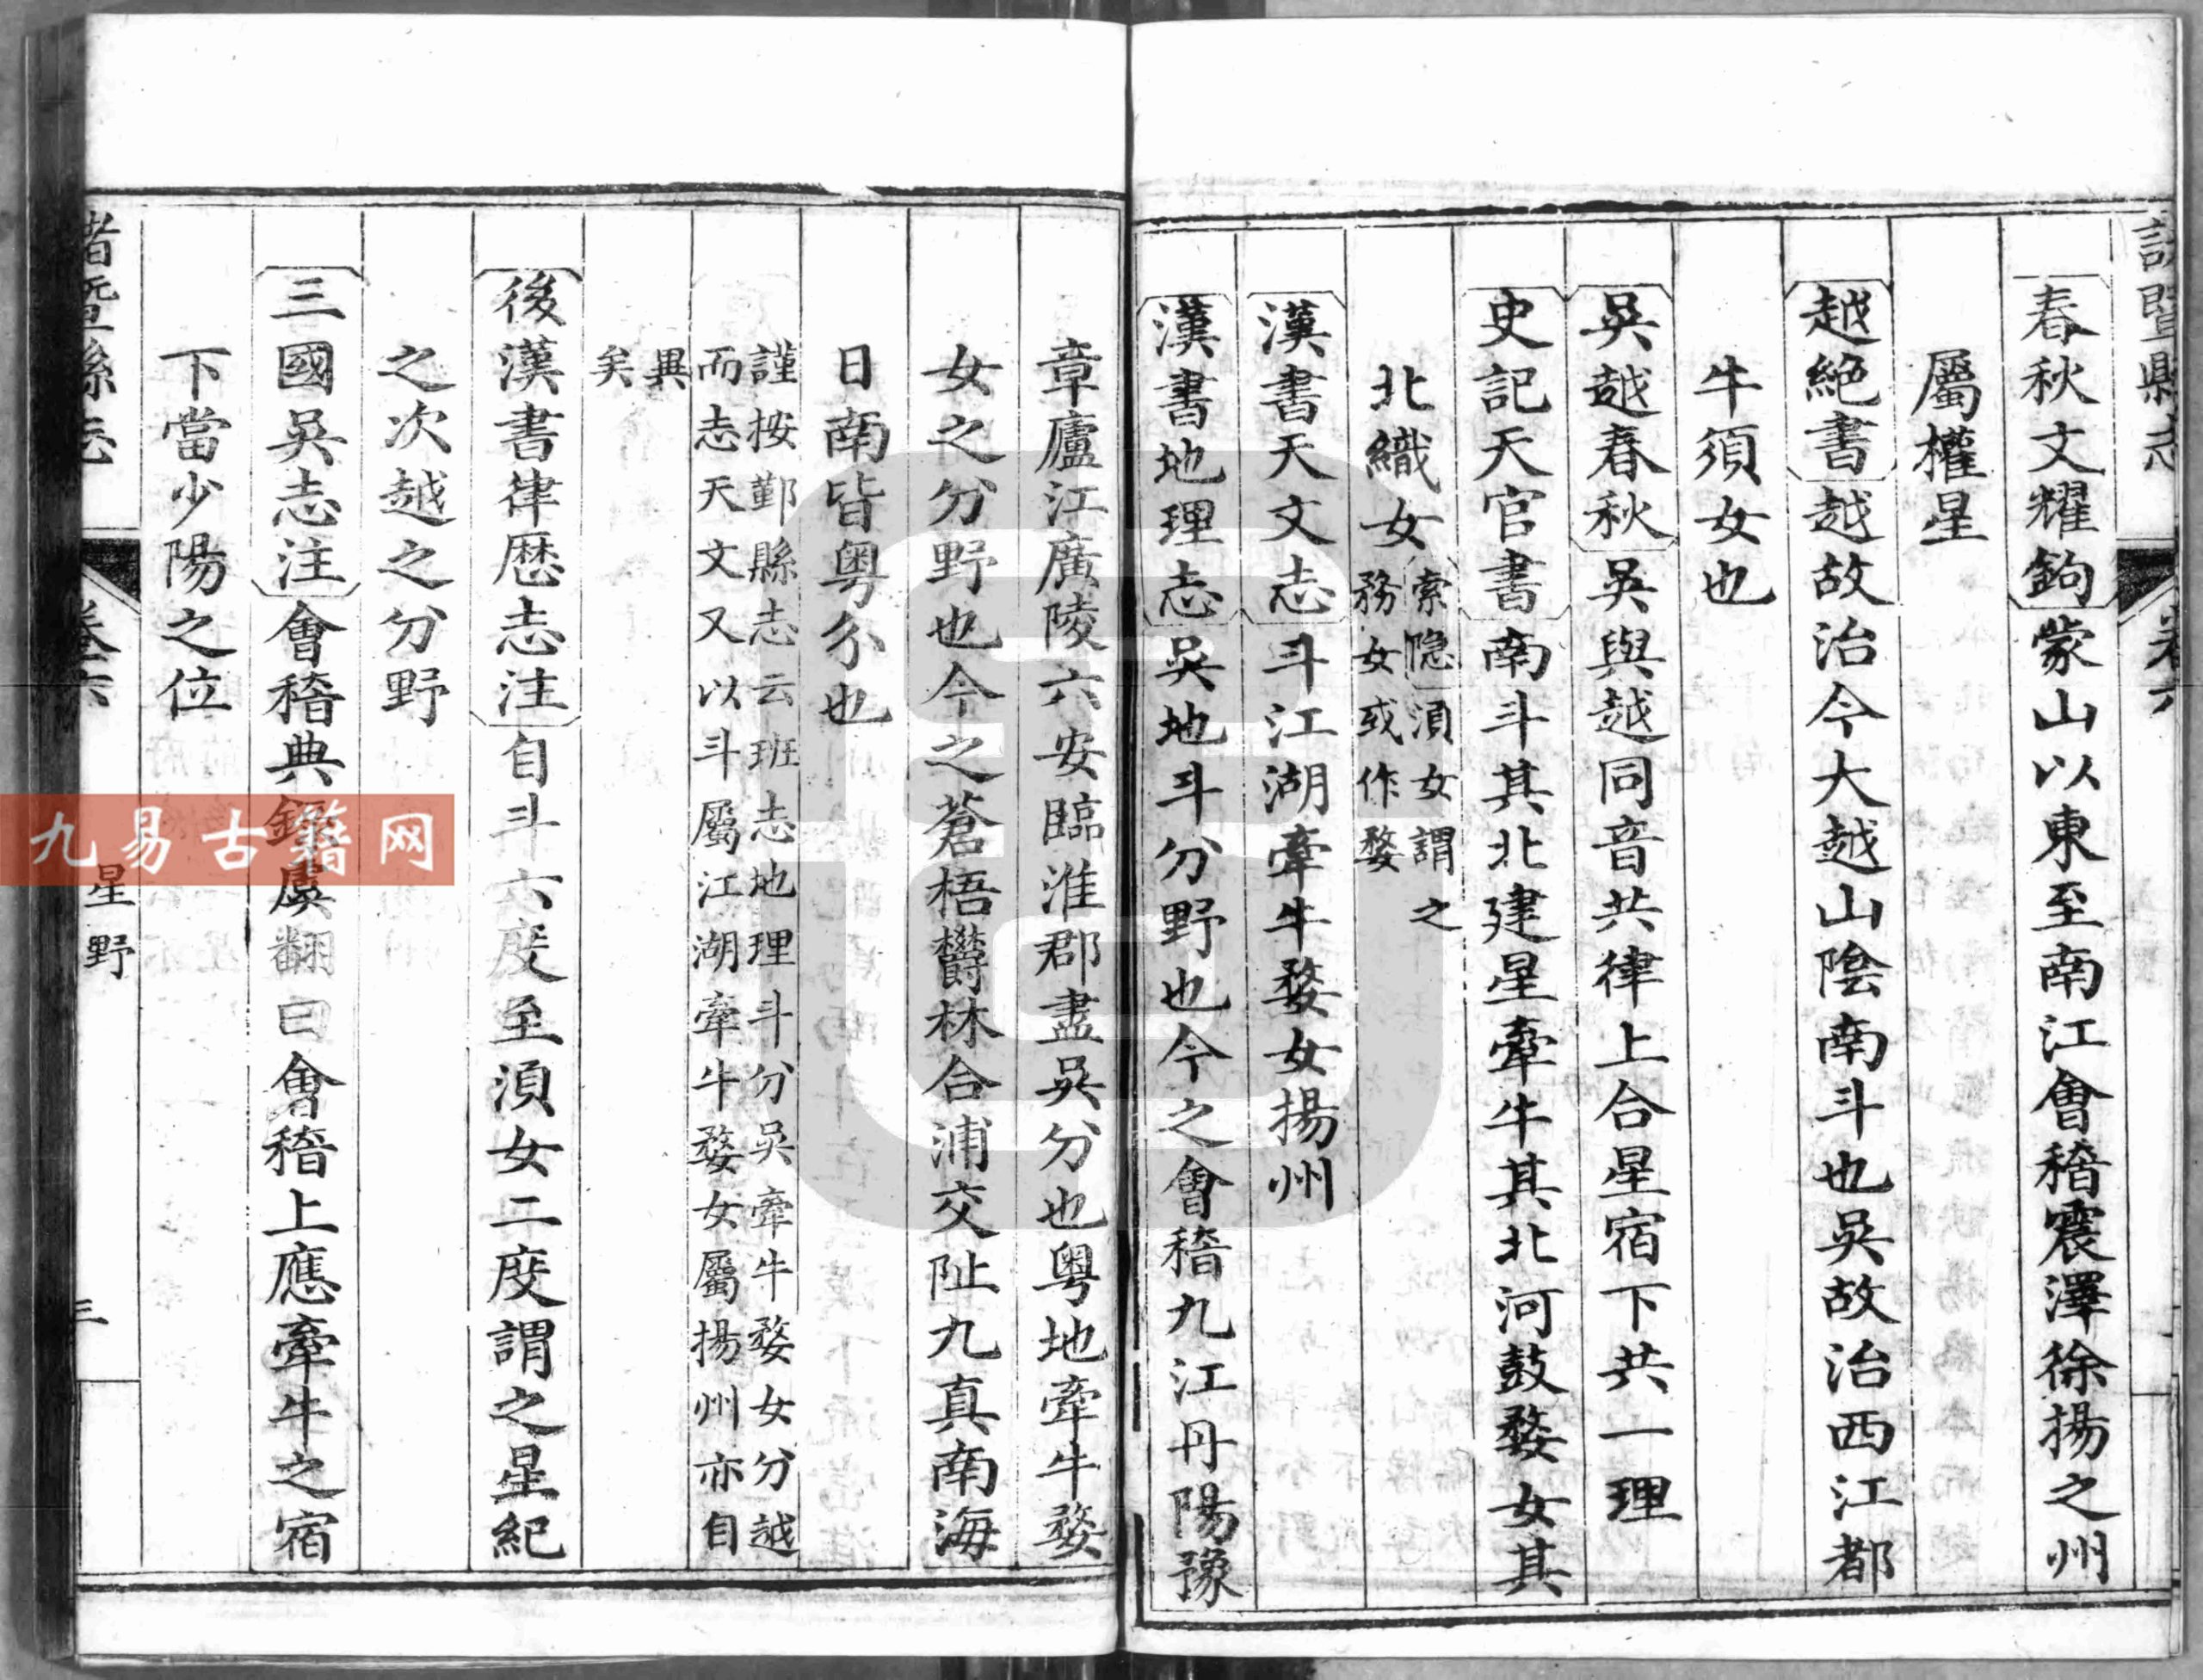 暨縣志
卷六
春秋文耀鉤蒙山以東至南江會稽震澤徐揚之州
屬權星
越絕書越故治今大越山陰南斗也吳故治西江都
牛須女也
吳越春秋吳與越同音共律上合星宿下共一理
史記天官書南斗其北建星牽牛其北河鼓婺女其
北織女
索隐須女謂之
務女或作婺
漢書天文志斗江湖牽牛婺女揚州
漢書地理志吳地斗分野也今之會稽九江丹陽豫
章廬江廣陵六安臨淮郡盡吳分也粤地牽牛婺
女之分野也今之蒼梧欝林合浦交阯九真南海
日南皆粤分也
謹按鄞縣志云班志地理斗分吳牽牛婺女分越
而志天文又以斗屬江湖牽牛婺女屬揚州亦自
異
矣
後漢書律厯志注自斗六度至須女二度謂之星紀
之次越之分野
三國吳志注會稽典錄虞翻曰會稽上應牽牛之宿
下當少陽之位
諸暨縣志
卷六
星野
三
九易古籍网